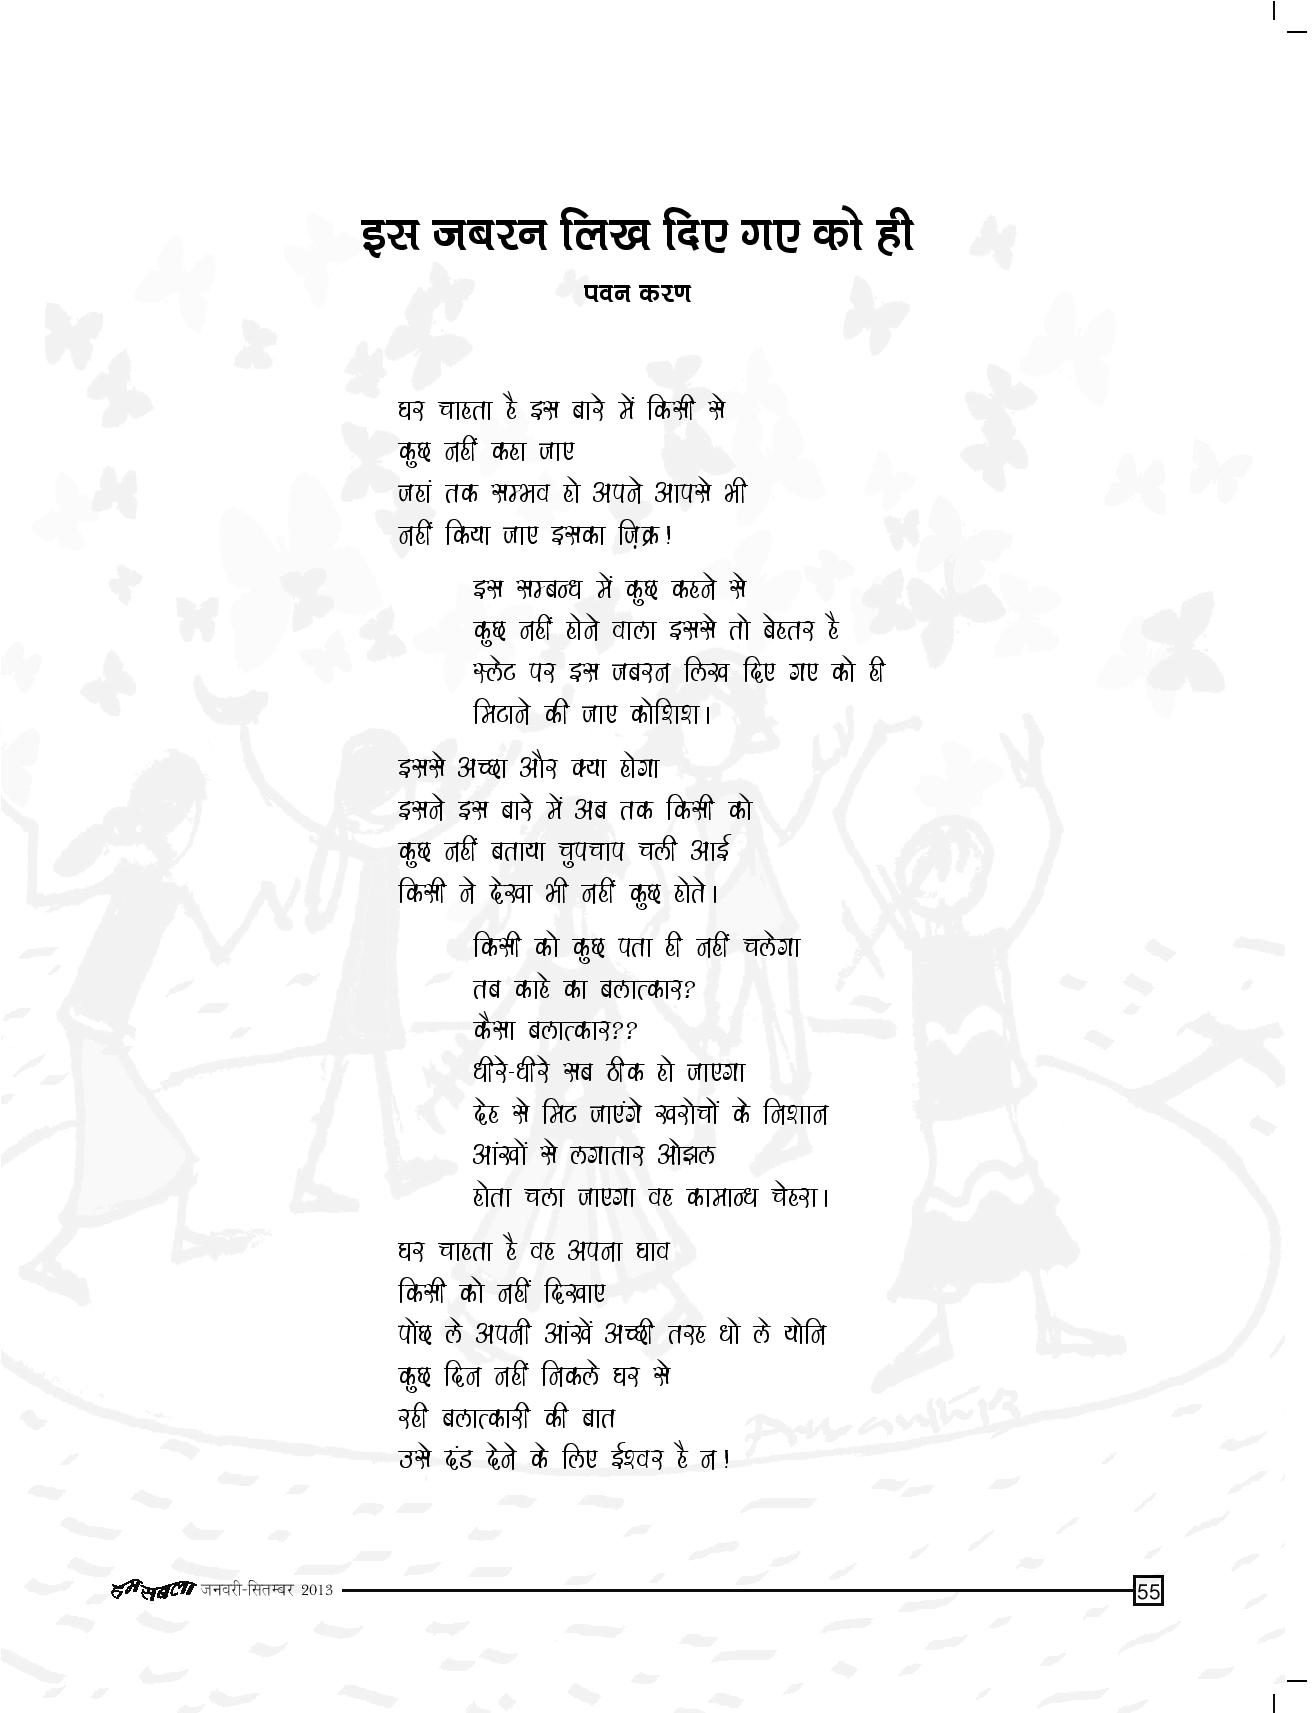 इस जबरन लिख दिए गए को ही
पवन करण
घर चाहता है इस बारे में किसी से
कुछ नहीं कहा जाए
जहां तक सम्भव हो अपने आपसे भी
नहीं किया जाए इसका ज़िक्र!
इस सम्बन्ध में कुछ कहने से
कुछ नहीं होने वाला इससे तो बेहतर है
स्लेट पर इस जबरन लिख दिए गए को ही
मिटाने की जाए कोशिश।
इससे अच्छा और क्या होगा
इसने इस बारे में अब तक किसी को
कुछ नहीं बताया चुपचाप चली आई
किसी ने देखा भी नहीं कुछ होते।
किसी को कुछ पता ही नहीं चलेगा
तब काहे का बलात्कार?
कैसा बलात्कार??
धीरे-धीरे सब ठीक हो जाएगा
देह से मिट जाएंगे खरोचों के निशान
आंखों से लगातार ओझल
होता चला जाएगा वह कामान्ध चेहरा।
घर चाहता है वह अपना घाव
किसी को नहीं दिखाए
पोंछ ले अपनी आंखें अच्छी तरह धो ले योनि
कुछ दिन नहीं निकले घर से
रही बलात्कारी की बात
उसे दंड देने के लिए ईश्वर है न!
हम सबला जनवरी-सितम्बर 2013
55